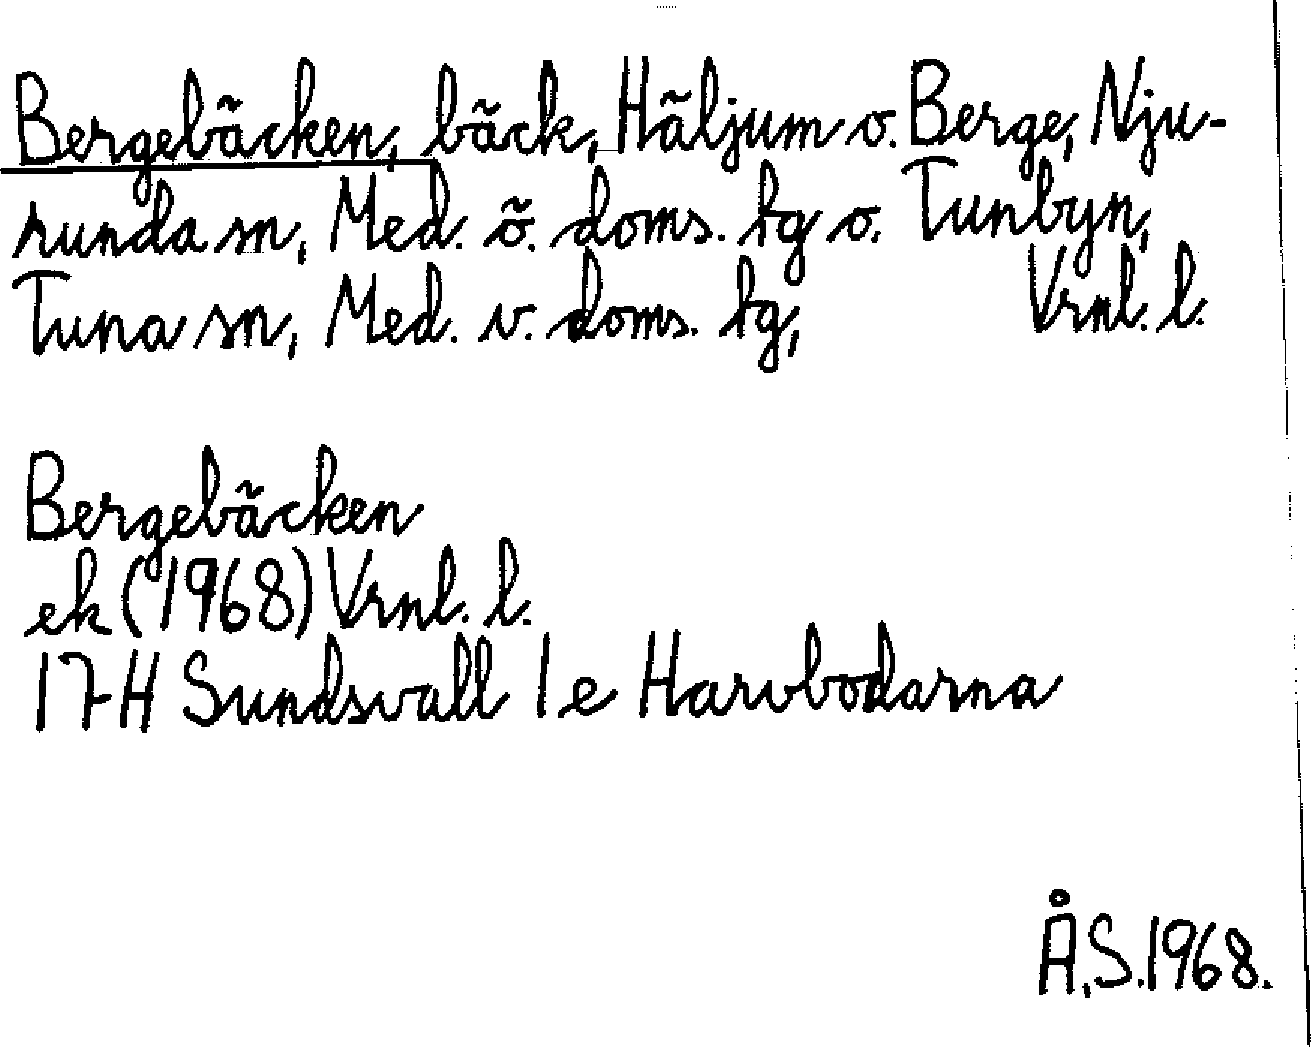 Bergebäcken, bäck, Häljum o. Berge, Nju-
runda sn, Med. ö. doms. tg o. Tunbyn,
Tuna sn, Med. v. doms. tg, Vrnl. l.
Bergebäcken
ek (1968) Vrnl. l.
17H Sundsvall 1e Harvbodarna
Å.S.1968.